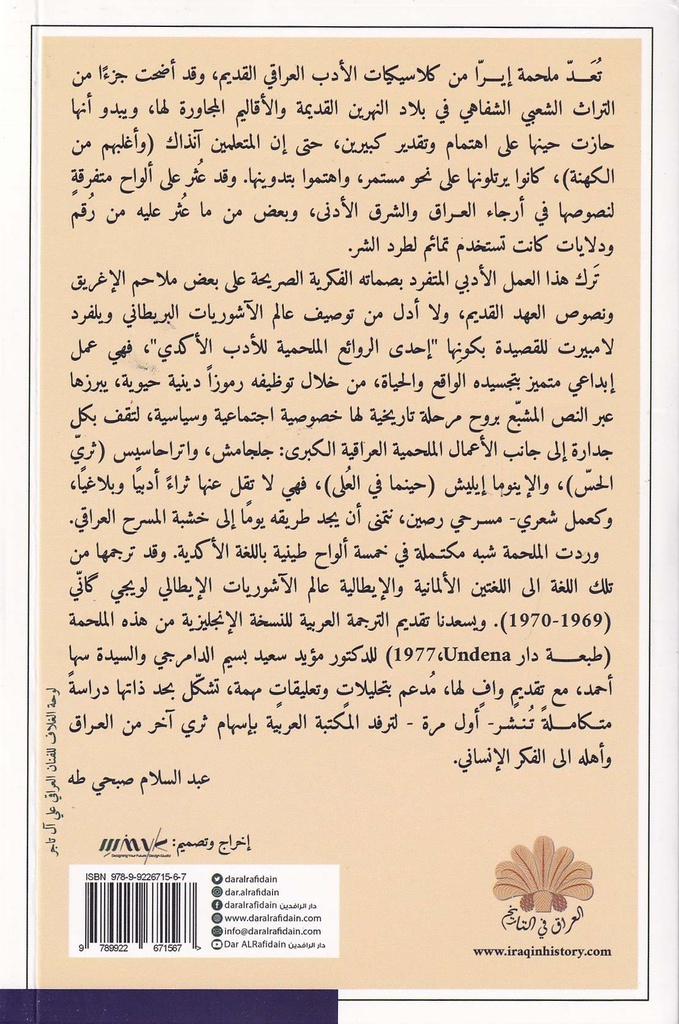 تُعَدّ ملحمة إيـرّا من كلاسيكيات الأدب العراقي القديم، وقد أضحت جزءًا من
التراث الشعبي الشفاهي في بلاد النهرين القديمة والأقاليم المجاورة لها، ويبدو أنها
حازت حينها على اهتمام وتقدير كبيرين، حتى إن المتعلمين آنذاك (وأغلبهم من
الكهنة)، كانوا يرتلونها على نحو مستمر، واهتموا بتدوينها. وقد عُثر على ألواح متفرقةٍ
لنصوصها في أرجاء العـراق والشرق الأدنى، وبعض من ما عُثر عليه من رُقم
ودلايات كانت تستخدم تمائم لطرد الشر.
تَرك هذا العمل الأدبي المتفرد بصماته الفكرية الصريحة على بعض ملاحم الإغريق
ونصوص العهد القديم، ولا أدل من توصيف عالم الآشوريات البريطاني ويلفرد
لامبيرت للقصيدة بكونها "إحدى الروائع الملحمية للأدب الأكدي"، فهي عمل
إبداعي متميز بتجسيده الواقع والحياة، من خلال توظيفه رموزاً دينية حيوية، يبرزها
عبر النص المشبّع بروح مرحلة تاريخية لها خصوصية اجتماعية وسياسية، لتقف بكل
جدارة إلى جانب الأعمال الملحمية العراقية الكبرى: جلجامش، واتراحاسيس (ثريّ
الحسّ)، والإينوما إيليش (حينما في العُلى)، فهي لا تقل عنها ثراءً أدبيًا وبلاغيًا،
وكعمل شعري- مسرحي رصين، نتمنى أن يجد طريقه يومًا إلى خشبة المسرح العراقي.
وردت الملحمة شبه مكتملة في خمسة ألواح طينية باللغة الأكدية. وقد ترجمها من
تلك اللغة الى اللغتين الألمانية والإيطالية عالم الآشوريات الإيطالي لويجي گانّي
(1969-1970). ويسعدنا تقديم الترجمة العربية للنسخة الإنجليزية من هذه الملحمة
(طبعـــة دار Undena،1977) للدكتور مؤيد سعيد بسيم الدامرجي والسيدة سها
أحمد، مع تقديمٍ وافٍ لها، مُدعم بتحليلاتٍ وتعليقاتٍ مهمة، تشكّل بحد ذاتها دراسةً
متكامـلةً تُنـشر- أول مرة - لترفد المكتبة العربية بإسهام ثري آخر من العراق
وأهله الى الفكر الإنساني.
عبد السلام صبحي طه
لوحة الغلاف للفنان العراقي علي آل تاجر
إخراج وتصميم:
Designing Your Future / Design Studio
ISBN 978-9-9226715-6-7
9 789922 671567
daralrafidain
dar.alrafidain
daralrafidain دار الرافدين
www.daralrafidain.com
info@daralrafidain.com
Dar ALRafidain دار الرافدين
العراق في التاريخ
www.iraqinhistory.com